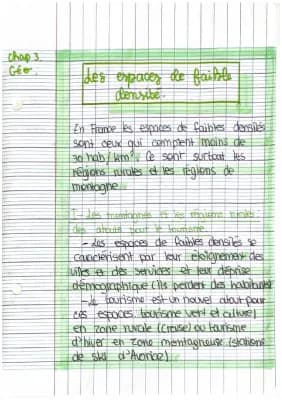 Chap 3.
Géo.
Les espaces de faible
densité.
En France les espaces de faibles densités
sont ceux qui comptent moins de
30 hab/km². Ce sont surtout les
régions rurales et les régions de
montagne.
I- Les montagnes et les régions rurales
des atouts pour le tourisme.
- Les espaces de faibles densités se
caractérisent par leur éloignement des
villes et des services et leur déprise
démographique (ils perdent des habitants)
- Le tourisme est un nouvel atout pour
ces espaces. tourisme vert et culturel
en zone rurale (Creuse) ou tourisme
d'hiver en zone montagneuse (stations
de ski d'Avoriaz)